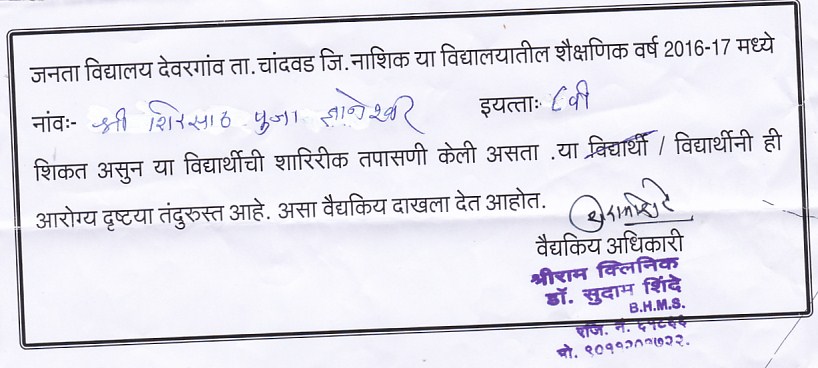 जनता विद्यालय देवरगांव ता. चांदवड जि.नाशिक या विद्यालयातील शैक्षणिक वर्ष 2016-17 मध्ये
नांवः- श्री शिरसाठ पुजा ज्ञानेश्वर इयत्ताः ८वी
शिकत असुन या विद्यार्थीची शारिरीक तपासणी केली असता .या विद्यार्थी / विद्यार्थीनी ही
आरोग्य दृष्टया तंदुरुस्त आहे. असा वैद्यकिय दाखला देत आहोत.
वैद्यकिय अधिकारी
श्रीराम क्लिनिक
डॉ. सुदाम शिंदे
B.H.M.S.
रजि. नं.
मो.